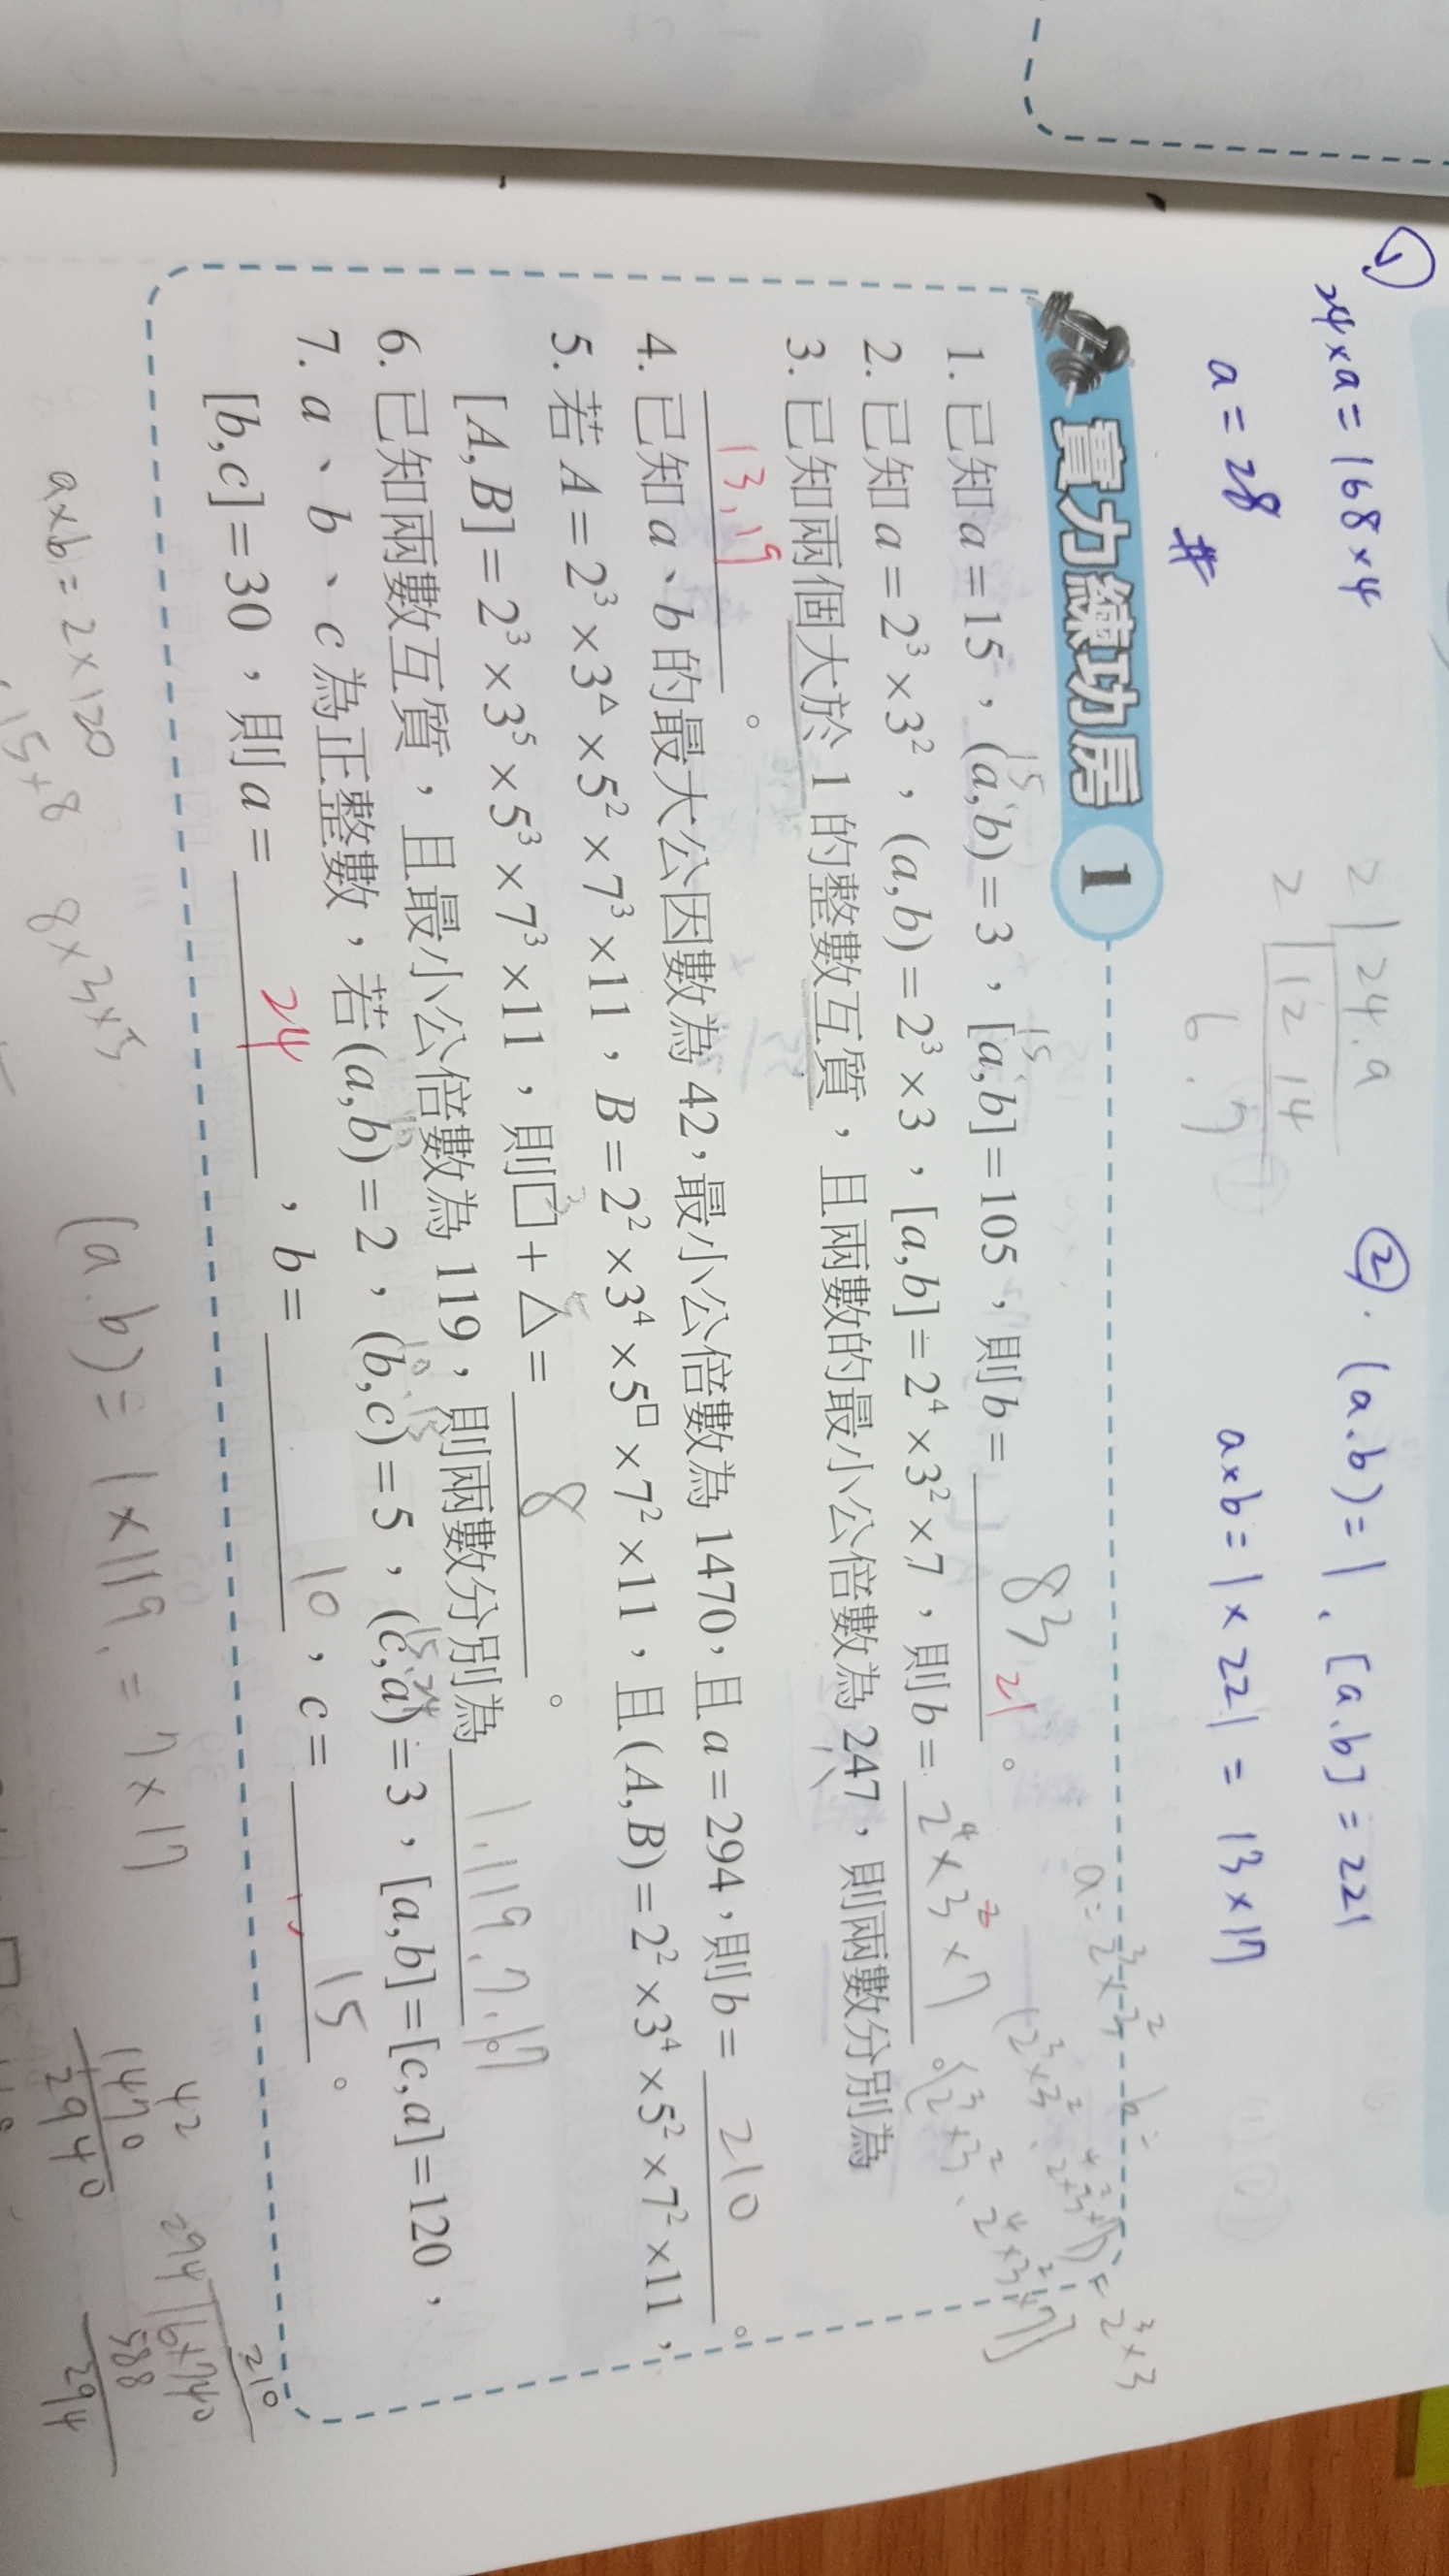 ① 24×a=168×4
a=28 #
2 24.a
2 12 14
6. 7
②. (a.b)=1 . [a.b]=221
a×b=1×221=13×17
實力練功房 1
1. 已知a=15,(a,b)=3,[a,b]=105,則b= 83 21 。
15
15
2. 已知a=2³×3²,(a,b)=2³×3,[a,b]=2⁴×3²×7,則b= 2⁴×3²×7 。
3. 已知兩個大於1的整數互質,且兩數的最小公倍數為247,則兩數分別為
13,19 。
4. 已知a、b的最大公因數為42,最小公倍數為1470,且a=294,則b= 210 。
5. 若A=2³×3△×5²×7³×11,B=2²×3⁴×5□×7²×11,且(A,B)=2²×3⁴×5²×7²×11,
[A,B]=2³×3⁵×5³×7³×11,則□+△= 8 。
6. 已知兩數互質,且最小公倍數為119,則兩數分別為 1.119.7.17 。
7. a、b、c為正整數,若(a,b)=2,(b,c)=5,(c,a)=3,[a,b]=[c,a]=120,
[b,c]=30,則a= 24 ,b= 10 ,c= 15 。
a×b=2×120
15+8
8×3×5
(a.b)=1×119.=7×17
42
1470
2940
210
294
588
294